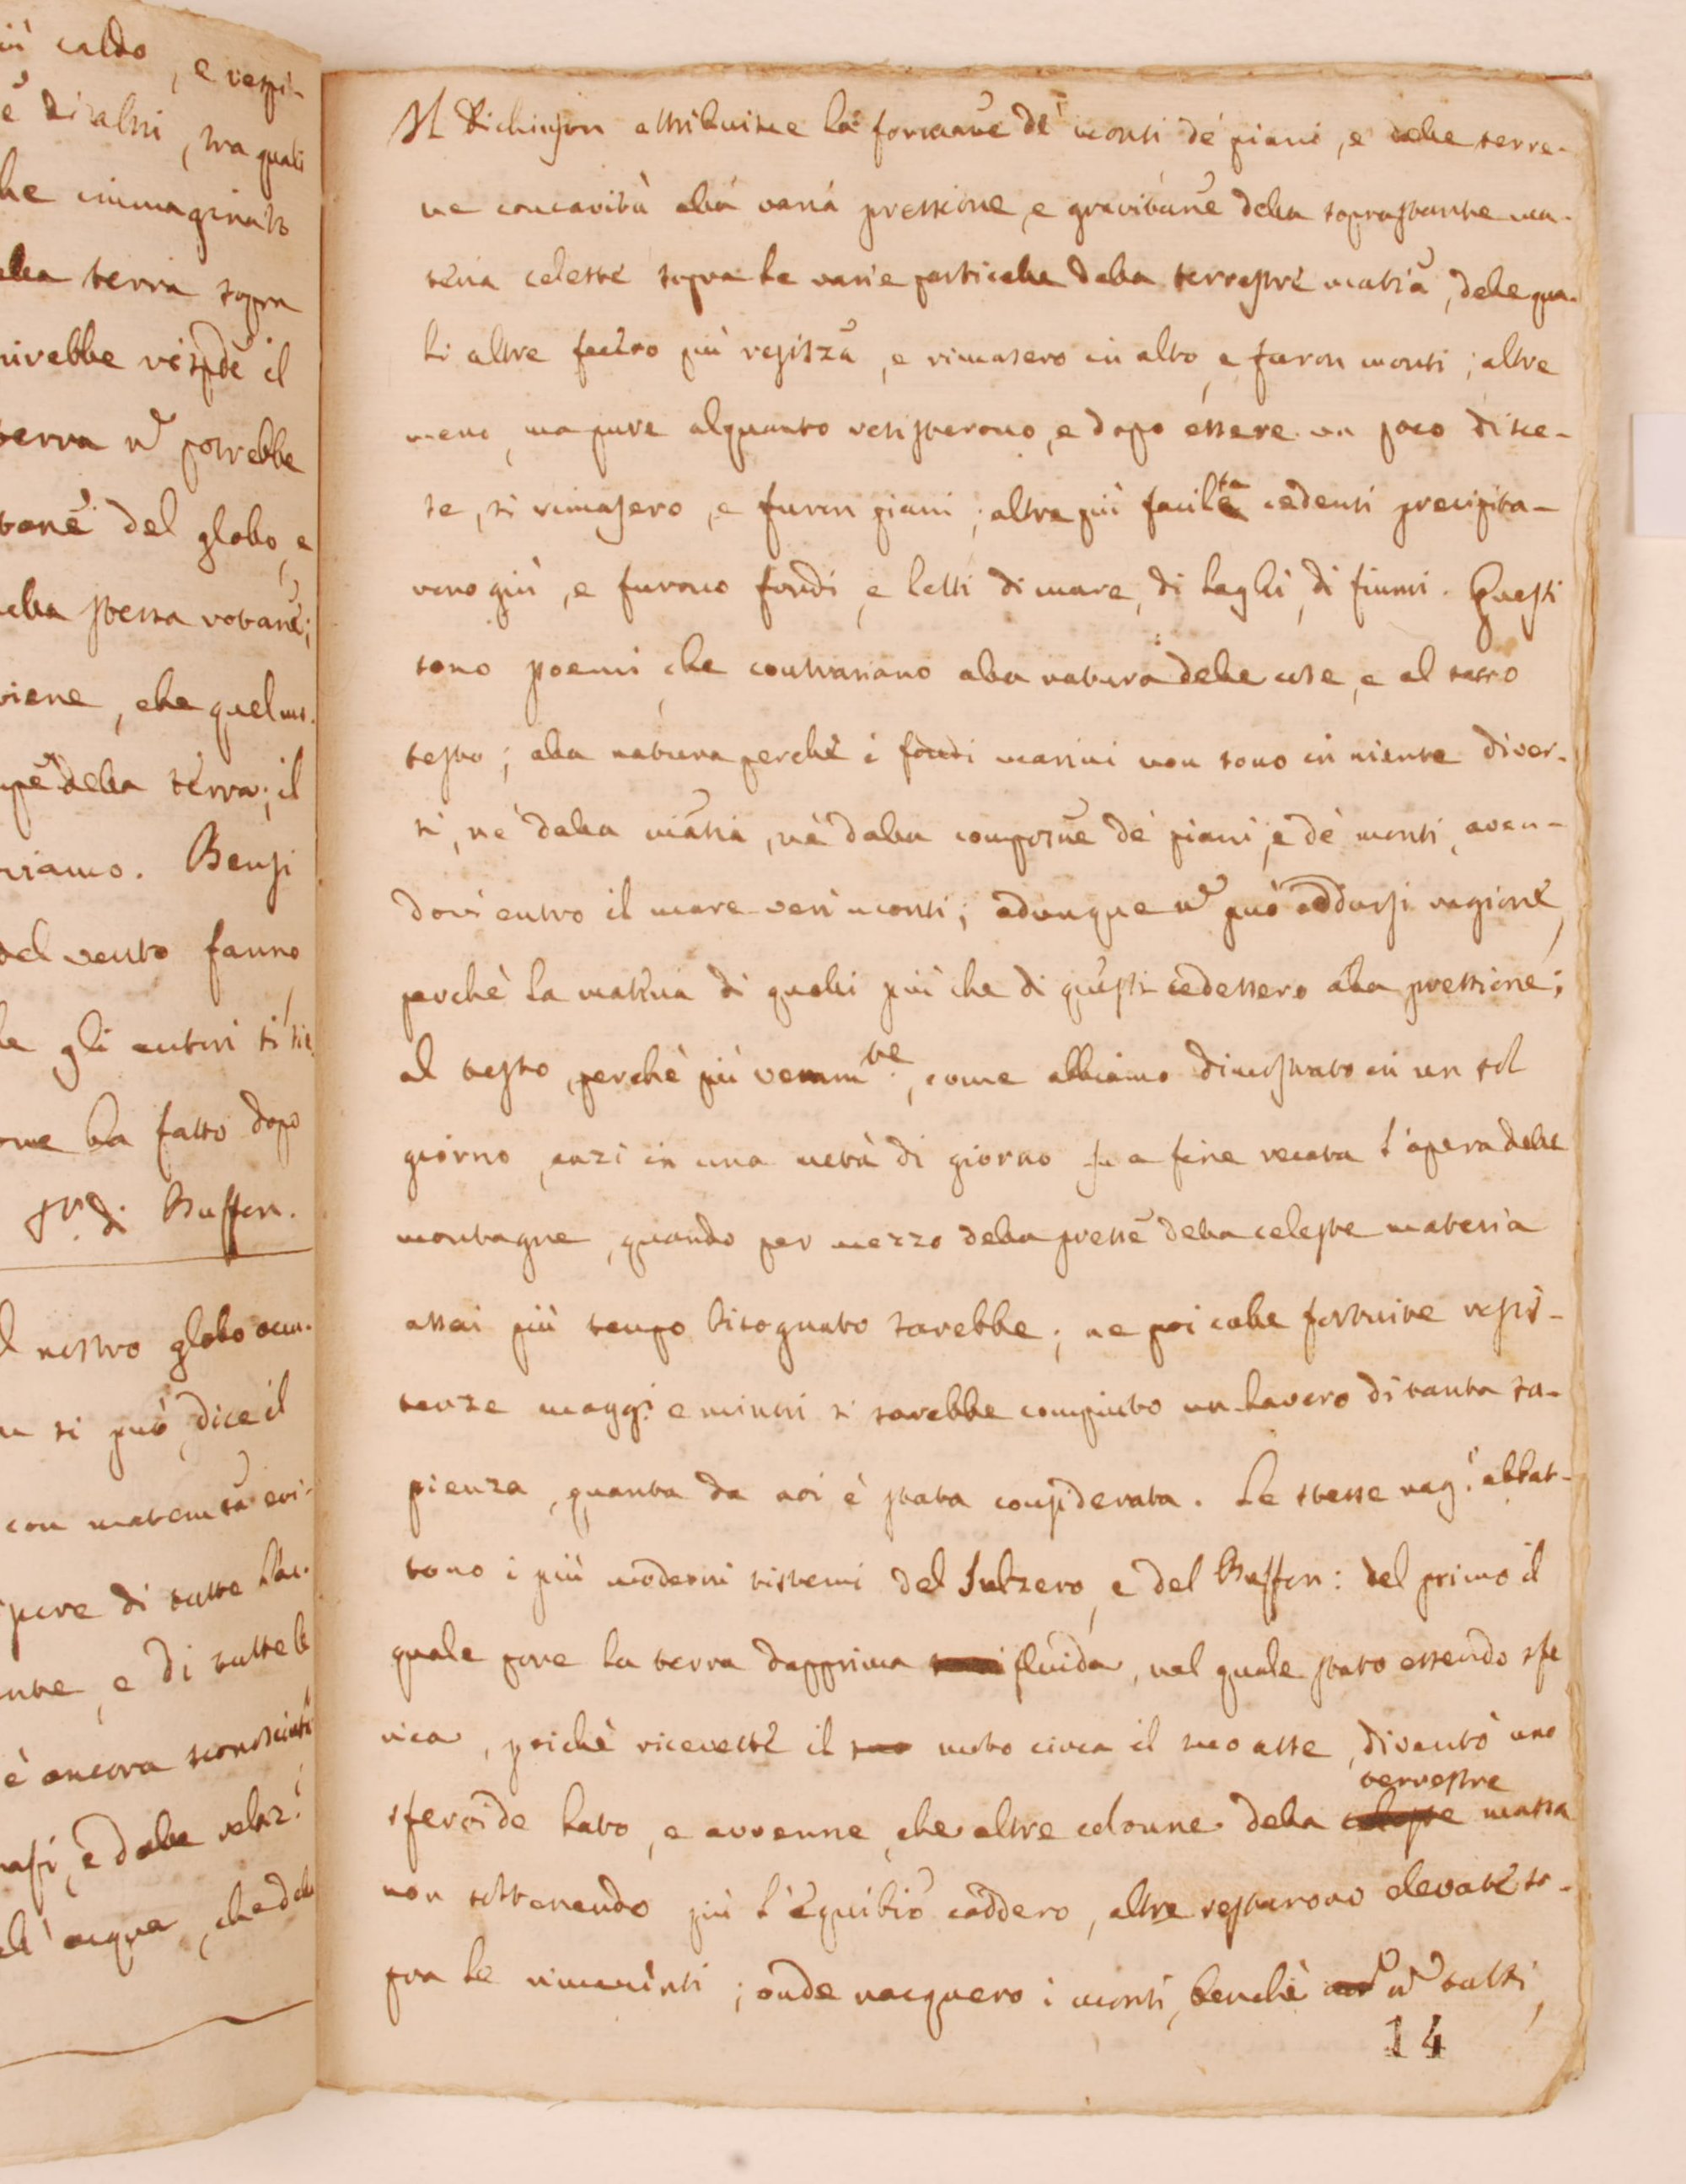 iù caldo, e respi-
e di altri, tra quali
he immaginato
alla terra sopra
rirebbe rispde il
terra nō potrebbe
tone del globo, e
ella stessa rotane;
viene, che quel
della terra; il
riamo. Bensi
del vento fanno
le gli autori si
ome ha fatto dopo
Sr. di Buffon.
l nostro globo
n si può, dice il
con evi-
pure di tutte
nte, e di tutte le
è ancora sconosciuti
e dalle
ll' acqua, che
Il Dichinson attribuisce la formane de' monti de' piani, e delle terre-
ne concavità alla varia pressione, e gravitane della soprastante ma-
teria celeste sopra le varie particelle della terrestre matia, delle qua-
li altre fecero più resistza, e rimasero in alto, e furon monti; altre
meno, ma pure alquanto resisterono, e dopo essere un poco disce-
se, si rimasero, e furon piani; altre più facilte cedenti precipita-
rono giù, e furono fondi, e letti di mare, di laghi, di fiumi. Questi
sono poemi, che contrariano alla natura delle cose, e al sacro
testo; alla natura perchè i fondi marini non sono in niente diver-
si, nè dalla matia, nè dalla composne de' piani, e de' monti, aven-
dovi entro il mare veri monti; adunque nō può addursi ragione,
perchè la materia di quelli più che di questi cedessero alla pressione;
al testo, perchè più veramte, come abbiamo dimostrato in un sol
giorno, anzi in una metà di giorno fu a fine recata l'opera delle
montagne, quando per mezzo della presse della celeste materia
assai più tempo bisognato sarebbe; ne poi colle fortuite resis-
tenze maggi e minori si sarebbe compiuto un lavoro di tanta sa-
pienza, quanta da noi è stata considerata. Le stesse rag.i abbat-
tono i più moderni sistemi del Sulzero, e del Buffon: del primo il
quale pone la terra dapprima fluida, nel quale stato essendo sfe
rica, poichè ricevette il moto circa il suo asse, diventò uno
sferoide lato, e avvenne, che altre colonne della terrestre massa
non sostenendo più l'equibio caddero, altre restarono elevate so-
pra le rimanenti; onde nacquero i monti, benchè nō tutti,
14